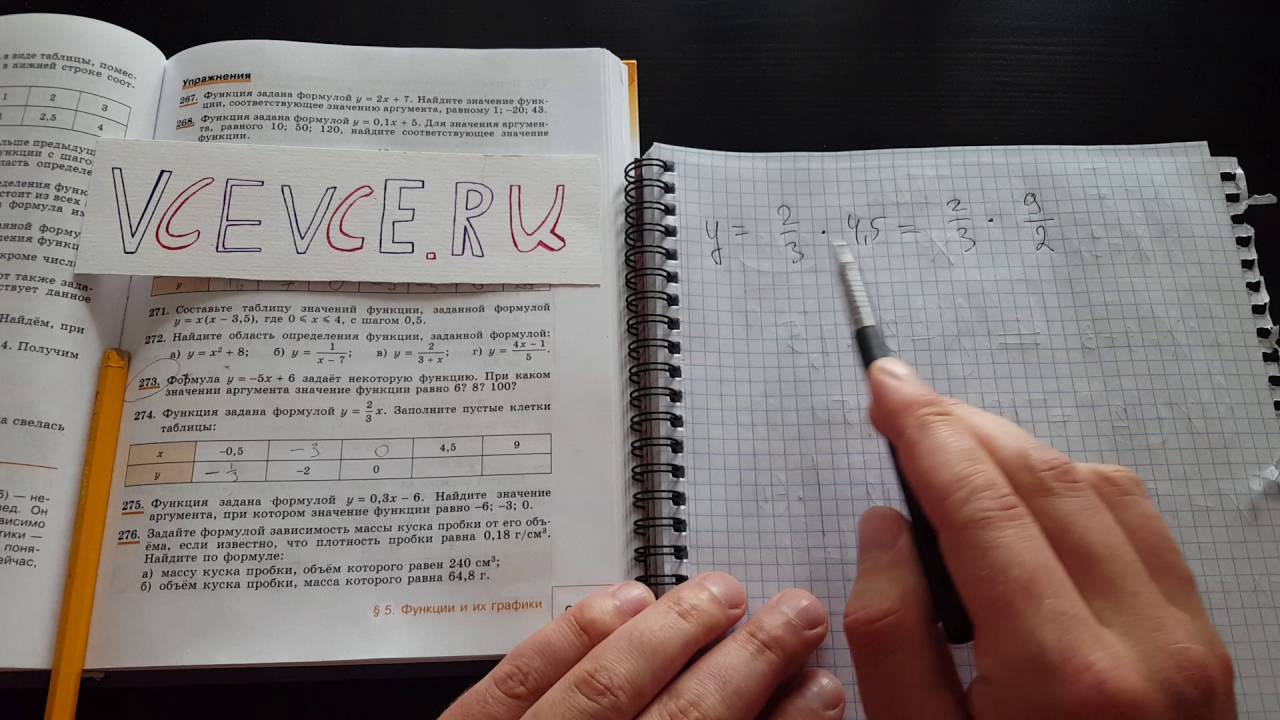 в виде таблицы, помес-
в нижней строке соот-
1 2 3
2,5 4
льше предыдущ
ункции с шаго
ласть определе
еделения функ
стоит из всех
формула из
анной форму
ления функц
кроме числ
от также зада-
ствует данное
Найдём, при
4. Получим
а свелась
б) — не-
ед. Он
ависимо
тики —
поня-
ейчас,
Упражнения
267. Функция задана формулой y = 2x + 7. Найдите значение функ-
ции, соответствующее значению аргумента, равному 1; –20; 43.
268. Функция задана формулой y = 0,1x + 5. Для значения аргумен-
та, равного 10; 50; 120, найдите соответствующее значение
функции.
VCEVCE.RU
y
271. Составьте таблицу значений функции, заданной формулой
y = x(x – 3,5), где 0 ⩽ x ⩽ 4, с шагом 0,5.
272. Найдите область определения функции, заданной формулой:
а) y = x² + 8; б) y = 1/(x – 7); в) y = 2/(3 + x); г) y = (4x – 1)/5.
273. Формула y = –5x + 6 задаёт некоторую функцию. При каком
значении аргумента значение функции равно 6? 8? 100?
274. Функция задана формулой y = 2/3 x. Заполните пустые клетки
таблицы:
x –0,5 –3 0 4,5 9
y –1/3 –2 0
275. Функция задана формулой y = 0,3x – 6. Найдите значение
аргумента, при котором значение функции равно –6; –3; 0.
276. Задайте формулой зависимость массы куска пробки от его объ-
ёма, если известно, что плотность пробки равна 0,18 г/см³.
Найдите по формуле:
а) массу куска пробки, объём которого равен 240 см³;
б) объём куска пробки, масса которого равна 64,8 г.
§ 5. Функции и их графики
y = 2/3 · 4,5 = 2/3 · 9/2